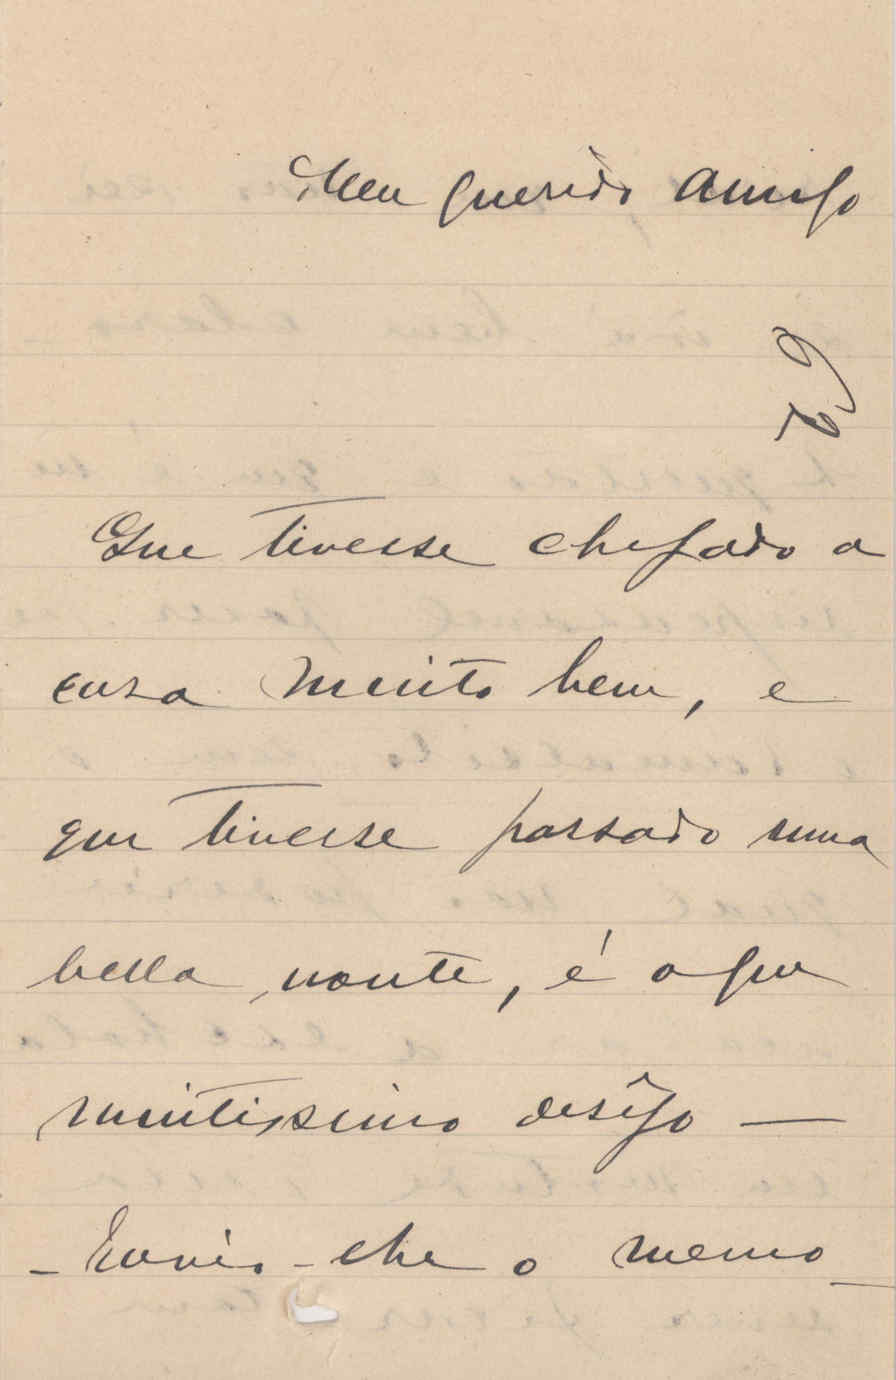 Meu querido Amigo
Que tivesse chegado a
casa muito bem, e
que tivesse passado uma
bella noute, é o que
muitissimo desejo —
- Envio-lhe o memo_